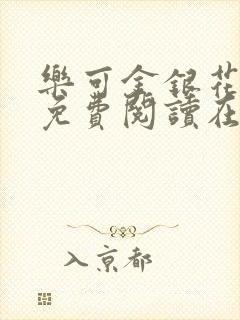 樂可金銀花
免費閱讀在
入京都